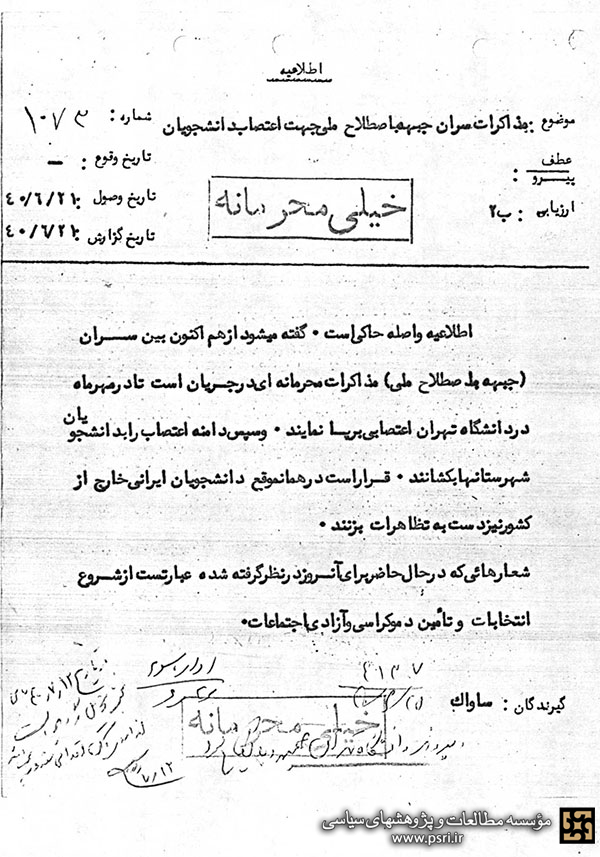 اطلاعیه
موضوع : مذاکرات سران جبهه باصطلاح ملی جهت اعتصاب دانشجویان
شماره : ۱۰۷۳
عطف
پیرو :
تاریخ وقوع : —
ارزیابی : ب۲
تاریخ وصول : ۴۰/۶/۲۱
تاریخ گزارش : ۴۰/۶/۲۱
خیلی محرمانه
اطلاعیه واصله حاکی است • گفته میشود از هم اکنون بین ســـران
(جبهه با صطلاح ملی) مذاکرات محرمانه ای در جریان است تا در مهرماه
در دانشگاه تهران اعتصابی برپا نمایند • وسپس دامنه اعتصاب را بدانشجویان
شهرستانها بکشانند • قرار است در همانموقع دانشجویان ایرانی خارج از
کشور نیز دست به تظاهرات بزنند •
شعارهائی که در حال حاضر برای آنروز در نظر گرفته شده عبارتست از شروع
انتخابات و تأمین دموکراسی و آزادی اجتماعات •
گیرندگان : ساواک
خیلی محرمانه
مؤسسه مطالعات و پژوهشهای سیاسی
www.psri.ir